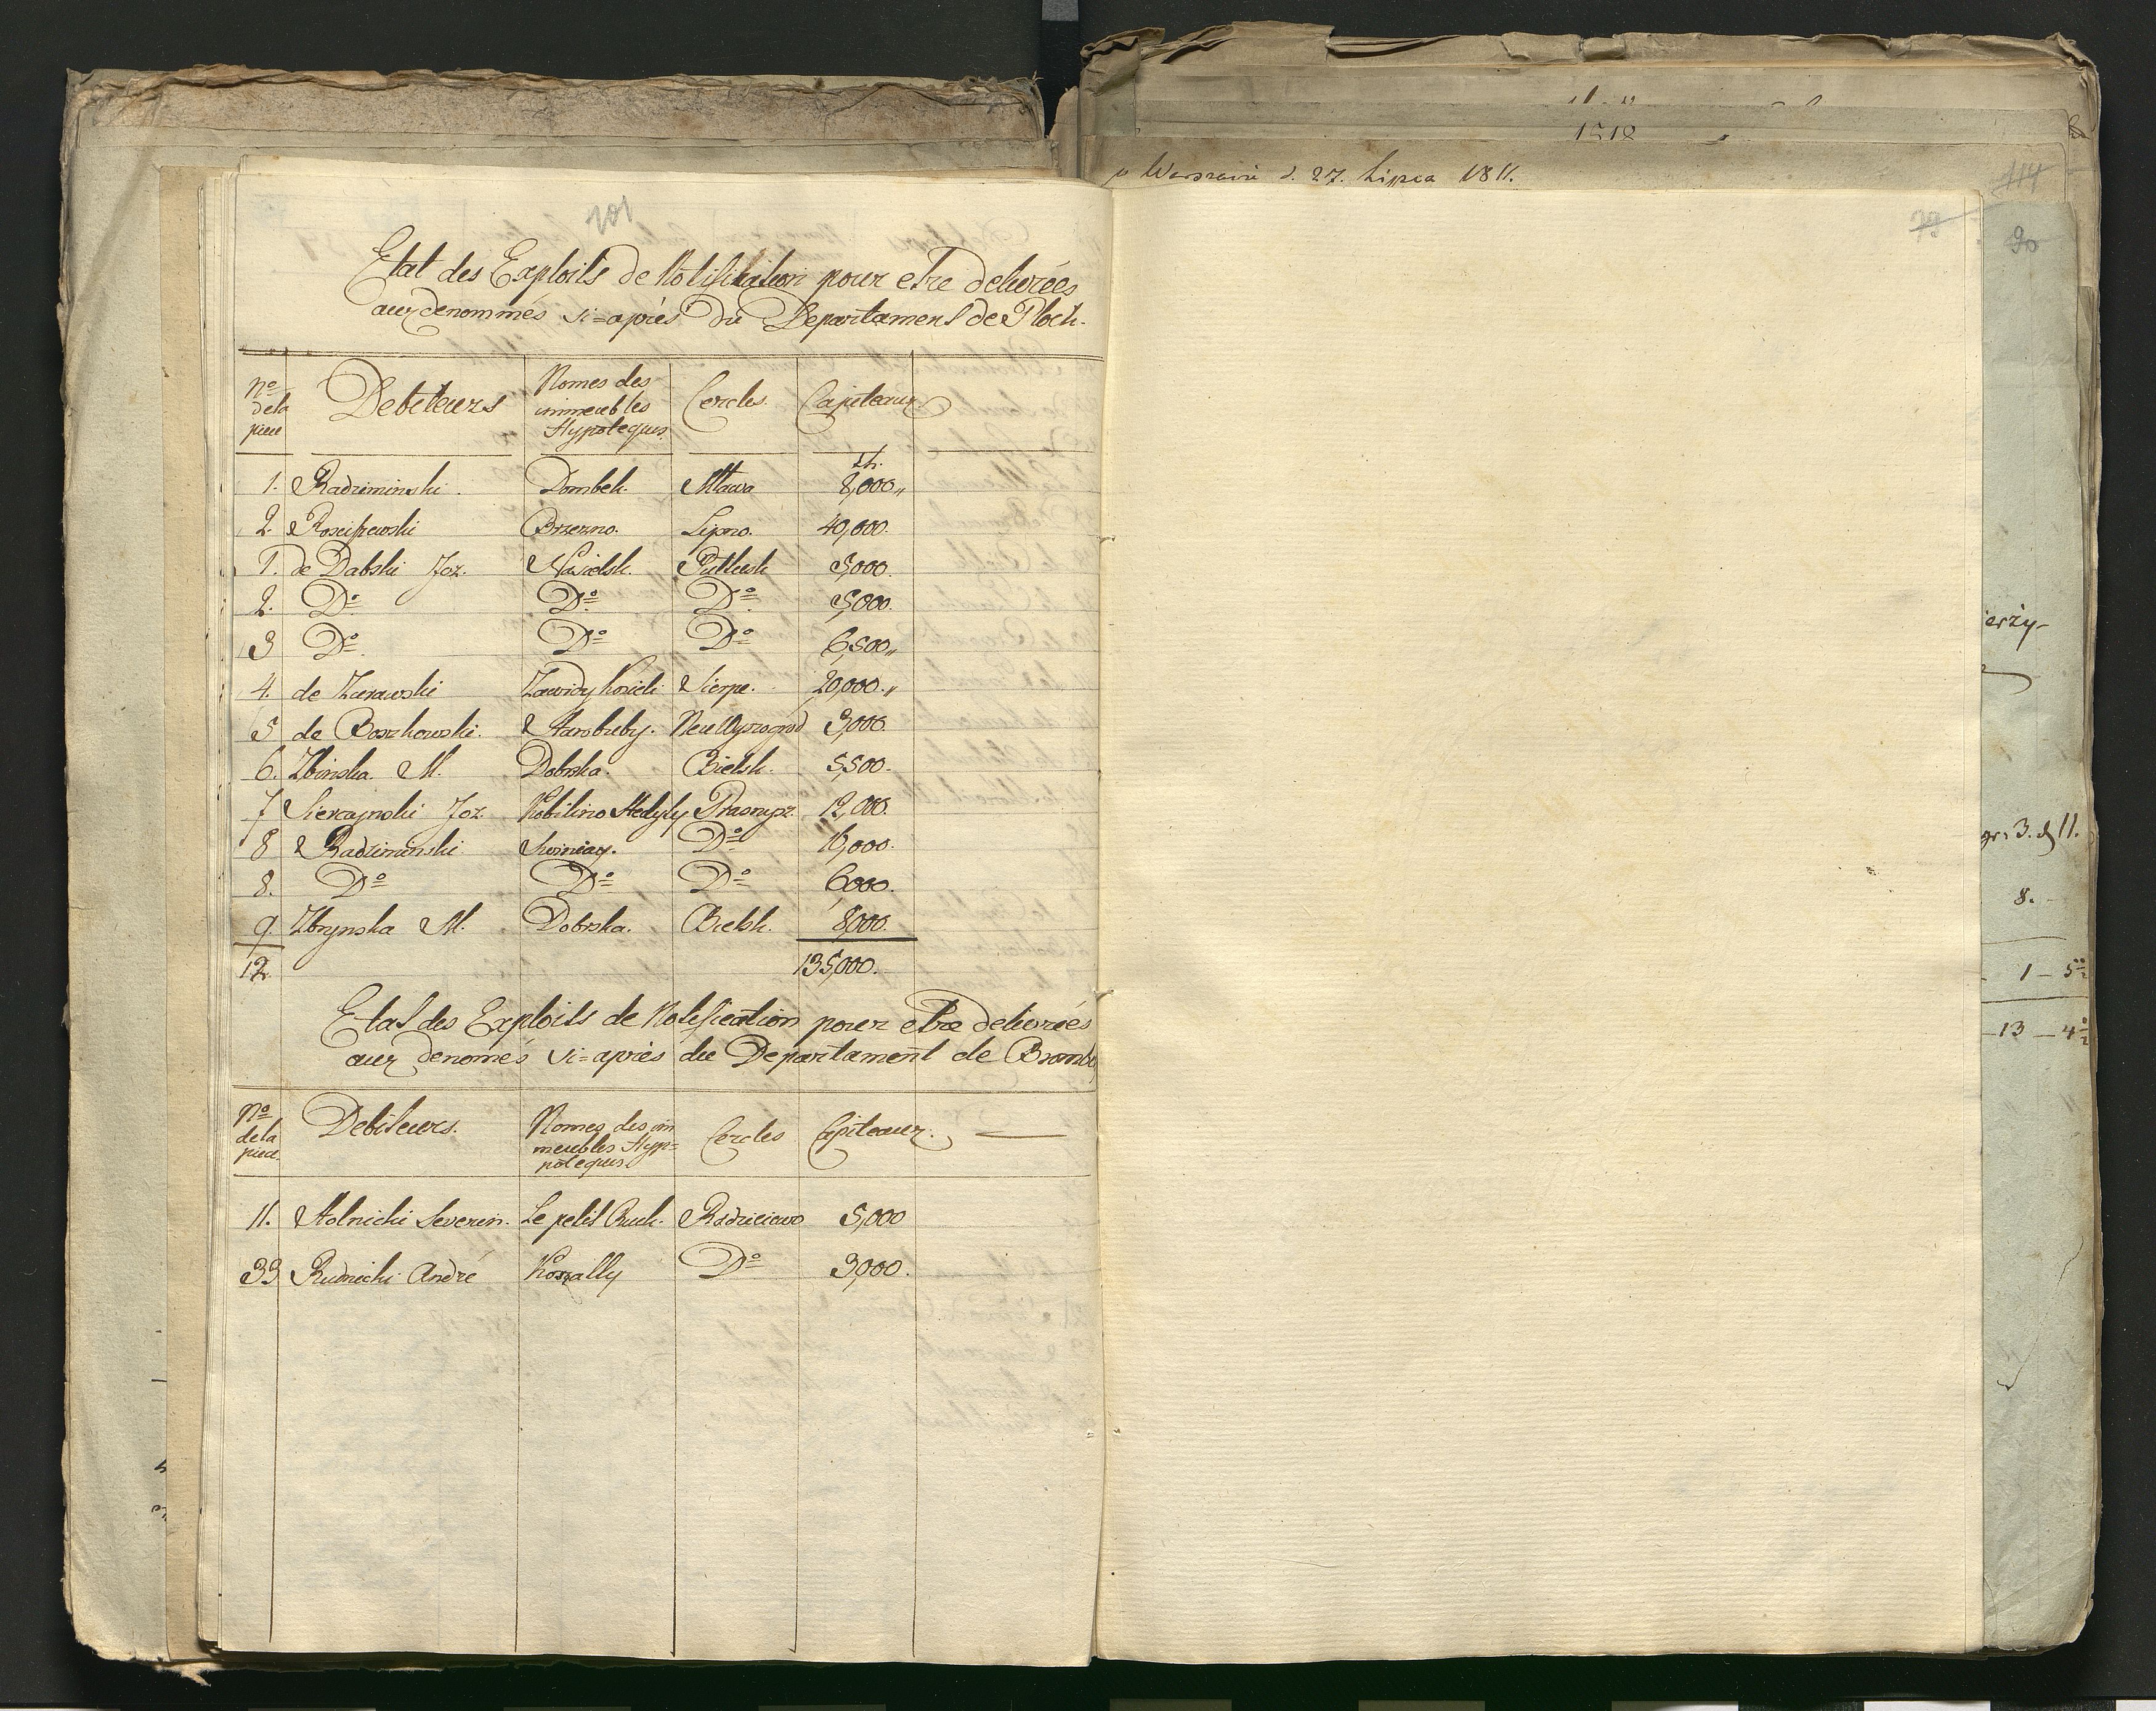 101
Etat des Exploits de Notification pour etre delivrées
aux denommés si=après du Departament de Plock.
No de la piece Debiteurs Nomes des immeubles Hypoteques Cercles. Capiteaux
th.
1. Radziminski. Dombek. Mlawa 8,000 "
2. Rosciszewski Brzezno. Lipno. 40,000.
1. de Dabski Joz. Nasielsk. Pultusk 5,000.
2. Do Do Do 5,000.
3 Do Do Do 6,500 "
4. de Zurawski Zawidz Koscieli Sierpc. 20,000. "
5 de Boszkowski. Starobuby. Neu Wyszogrod 3,000.
6. Zbinska. M. Dobrska. Bielsk. 5,500.
7 Sierzynski Joz. Kobilino Prasnysz. 12,000.
8 Radziminski Do 16,000.
8. Do Do Do 6,000.
9. Zbrynska M. Dobrska. Bielsk. 8,000.
12. 135,000.
Etat des Exploits de Notification pour etre delivrées
aux denomés si=après du Departament de Bromb
No de la piece Debiteurs. Nomes des im meubles Hyp= poteques Cercles Capiteaux.
11. Stolnicki Severin. Le petit Ruck. Radzieiewo 5,000
33 Rudnicki André Koszally Do 3,000.
1518
w Warszawie d. 27. Lipca 1811.
114
79
90
erży-
gr. 3. d 11.
8.
1 - 5
13 - 4